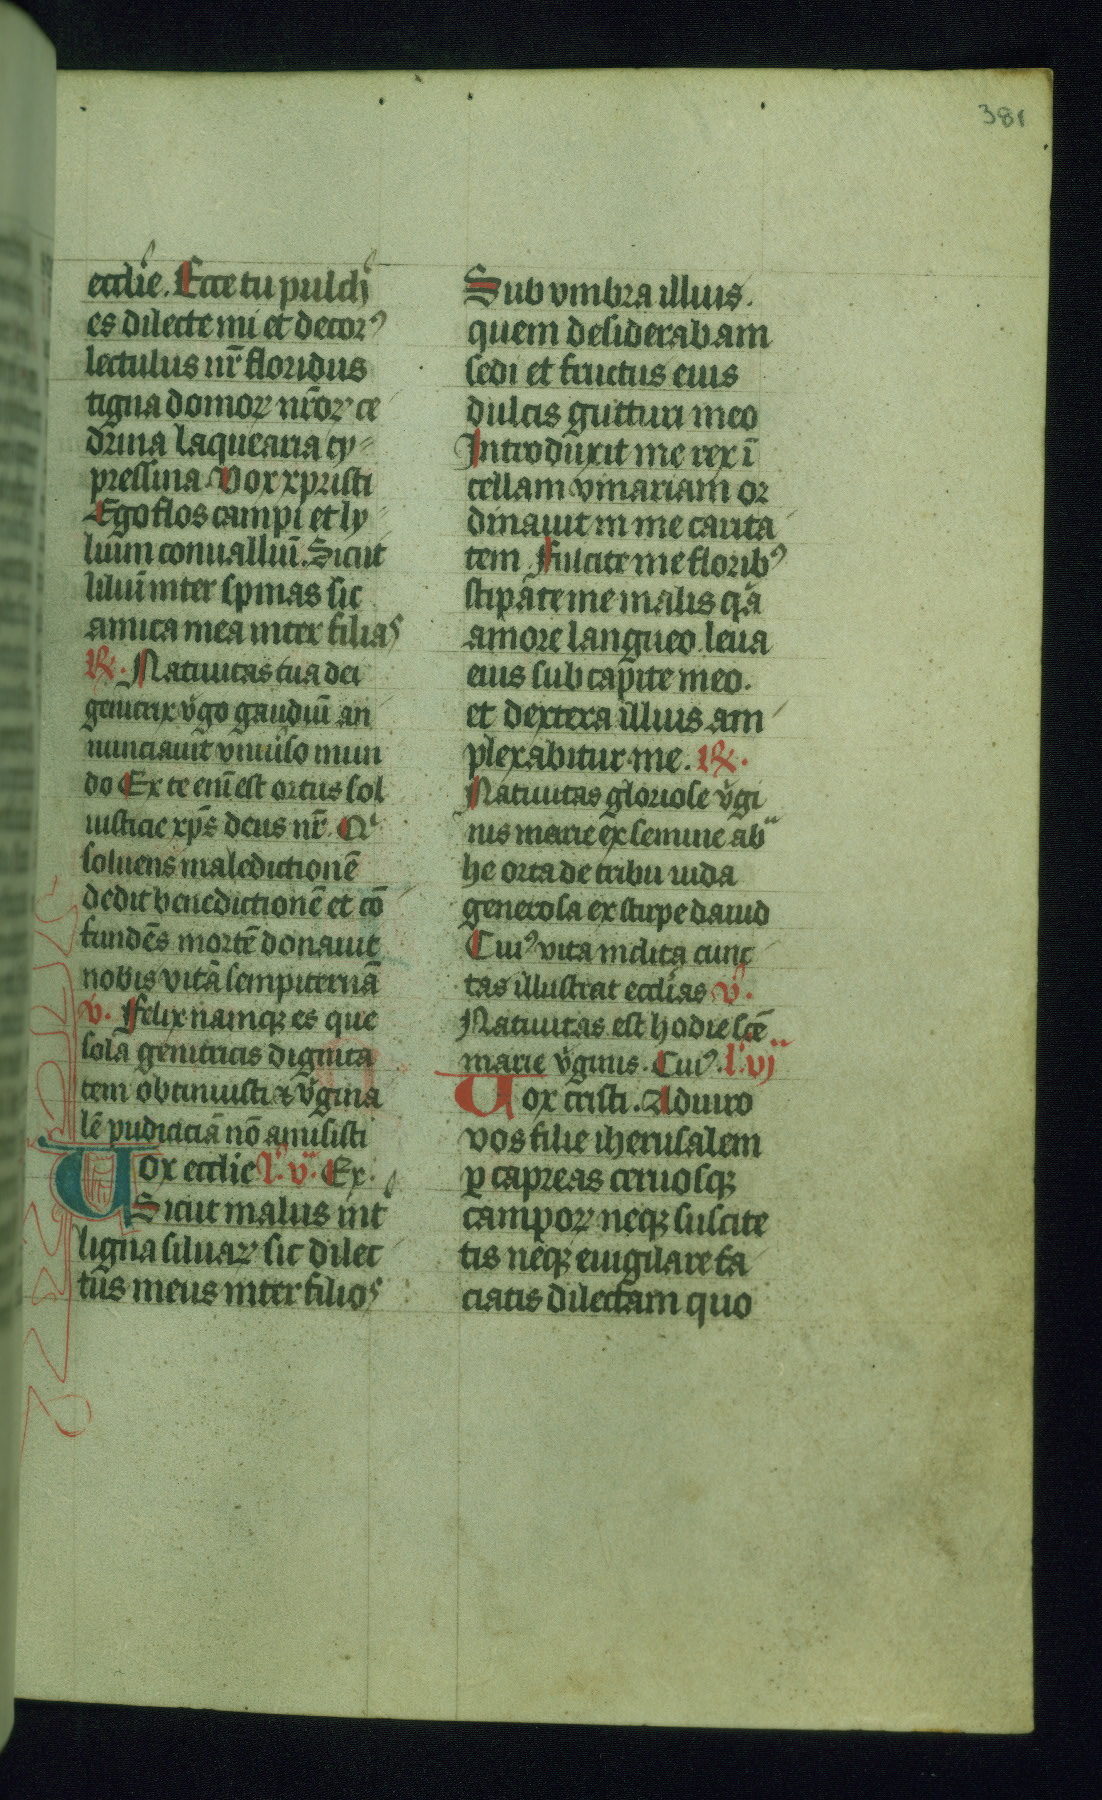 381
eccl̄ie. Ecce tu pulch͛
es dilecte mi et decorꝰ
lectulus nr̄ floridus
tigna domoꝝ nr̄oꝝ ce
drina laquearia cy
pressina Vox xpristi
Ego flos campi et ly
lium conualliū. Sicut
liliū inter spinas sic
amica mea inter filias
℟. Natiuitas tua dei
genitrix v̾go gaudiū an
nunciauit vniuˢo mun
do Ex te eni̅ est ortus sol
iusticie xp̄s deus nr̄. Qͥ
soluens maledictionē
dedit benedictionē et cō
fundēs mortē donauit
nobis vitā sempiternā
v̾. Felix namqꝫ es que
sola genitricis dignita
tem obtinuisti ⁊ v̾gina
lē pudiciciā nō amisisti
Vox ecclīe lº. vª. Ex.
Sicut malus int̾
ligna siluaꝝ sic dilec
tus meus inter filios
Sub vmbra illius.
quem desiderabam
sedi et fructus eius
dulcis gutturi meo
Introduxit me rex ī
cellam vinariam or
dinauit in me carita
tem Fulcite me floribꝰ
stipate me malis qͣa
amore langueo leua
eius sub capite meo.
et dextera illius am
plexabitur me. ℟.
Natiuitas gloriose v̾gi
nis marie ex semine abͣ
he orta de tribu iuda
generosa ex stirpe dauid
Cuiꝰ vita inclita cunc
tas illustrat eccl̄ias v̾.
Natiuitas est hodie scē
marie v̾ginis. Cuiꝰ. lº. vj
Vox cristi. Adiuro
vos filie iherusalem
ꝑ capreas ceruosqꝫ
campoꝝ neqꝫ suscite
tis neqꝫ euigilare fa
ciatis dilectam quo